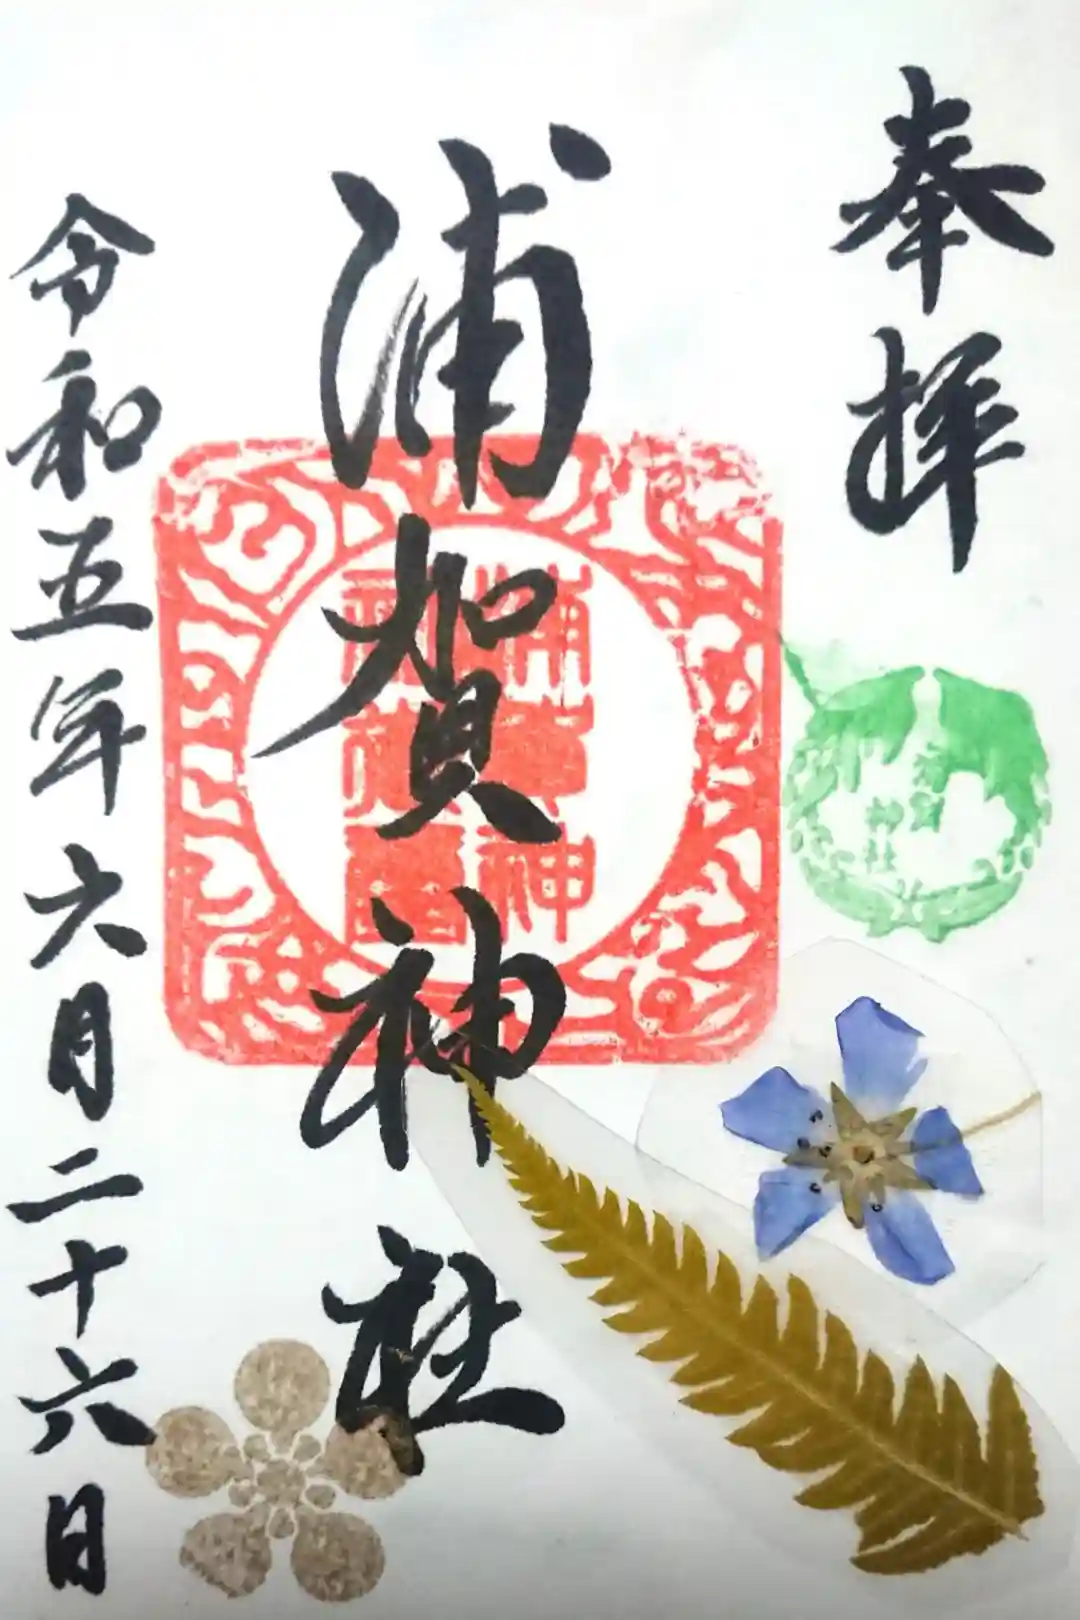 奉拝
浦賀神社
令和五年六月二十六日
浦賀神
神社